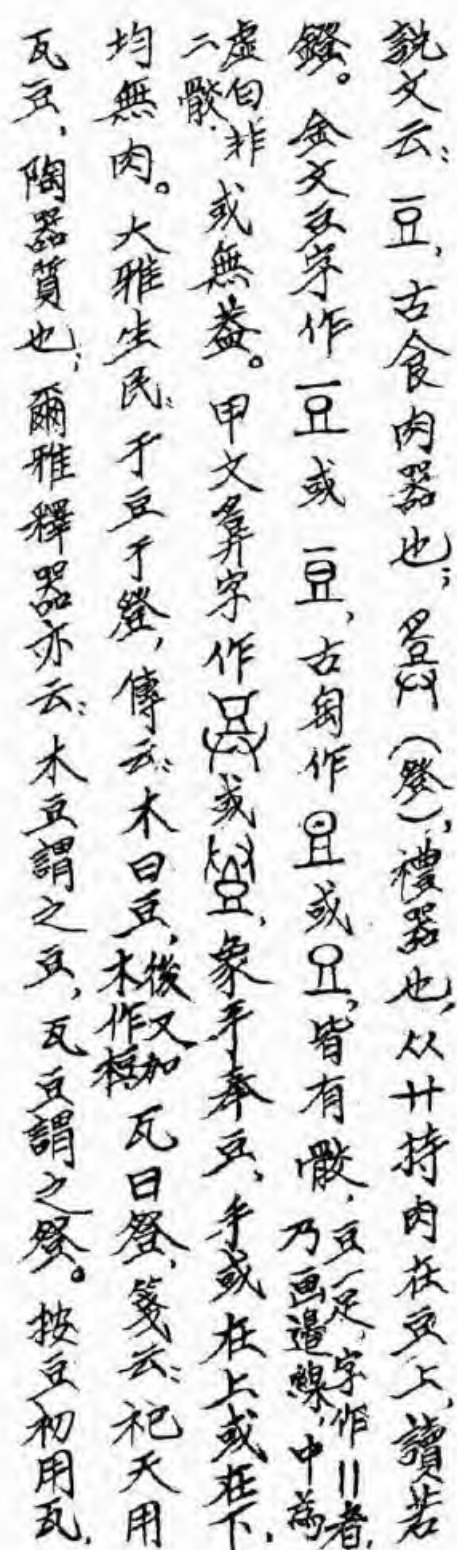 說文云：豆，古食肉器也；𤼷（登），禮器也，从廾持肉在豆上，讀若
鐙。金文豆字作或，古匋作或，皆有骰，豆一足，字作〢者，乃画邊線，中為
虛白非二骰。或無蓋。甲文𤼷字作或，象手奉豆，手或在上或在下，
均無肉。大雅生民：于豆于登，傳云：木曰豆，後又加木作梪瓦曰登，箋云：祀天用
瓦豆，陶器質也；爾雅釋器亦云：木豆謂之豆，瓦豆謂之登。按豆初用瓦，